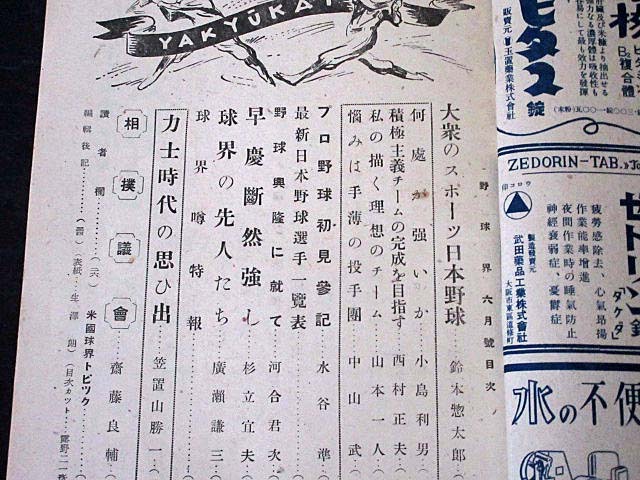 YAKYŪKAI
野球界六月號目次
大衆のスポーツ日本野球 鈴木惣太郎
何處が强いか 小島利男
積極主義チームの完成を目指す 西村正夫
私の描く理想のチーム 山本一人
惱みは手薄の投手團 中山武
プロ野球初見參記 水谷準
最新日本野球選手一覽表
野球興隆に就て 河合君次
早慶斷然强し 杉立宜夫
球界の先人たち 廣瀨謙三
球界噂特報
力士時代の思ひ出 笠置山勝一
相撲議會 齋藤良輔
米國球界トピック
讀者欄
編輯後記
表紙
目次カット
ビタス錠
B₁複合體
肝臟及び米糠より抽出せる
販賣元 玉置藥業株式會社
ZEDORIN-TAB.
ゼドリン錠
タケダ
疲勞感除去、心氣昂揚
作業能率增進
夜間作業時の睡氣防止
神經衰弱症、憂鬱症
製造發賣元
武田藥品工業株式會社
大阪市東區道修町
水の不便